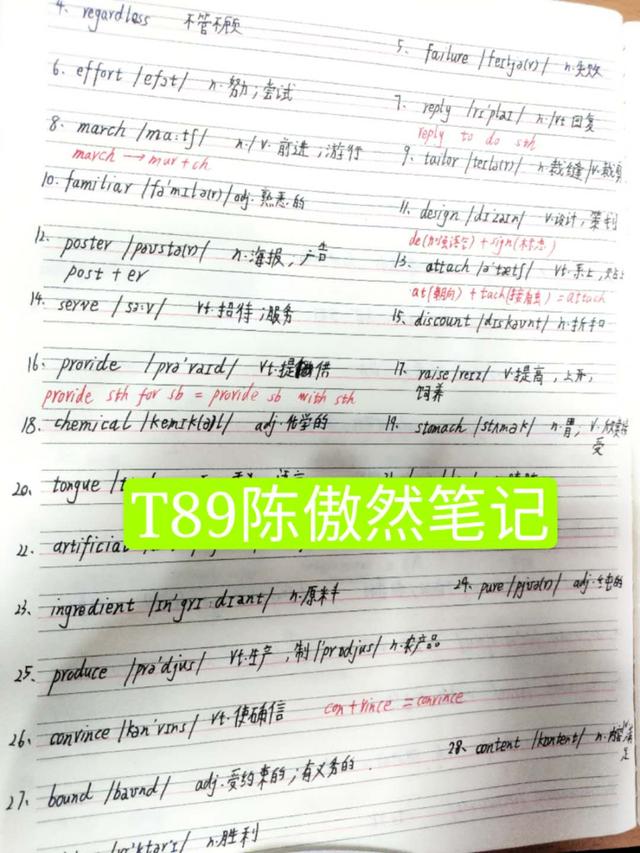 4. regardless 不管不顾
5. failure /feɪljə(r)/ n.失败
6. effort /efət/ n.努力;尝试
7. reply /rɪ'plaɪ/ n./vt 回复
reply to do sth
8. march /mɑ:tʃ/ n./v.前进;游行
march → mar + ch
9. tailor /teɪlə(r)/ n.裁缝/v.裁剪
10. familiar /fə'mɪlə(r)/ adj.熟悉的
11. design /dɪzaɪn/ v.设计,策划
de(加强语气)+sign(标志)
12. poster /pəʊstə(r)/ n.海报,广告
post + er
13. attach /ə'tætʃ/ vt.系上,
at(朝向)+tach(接触)=attach
14. serve /sə:v/ vt.招待;服务
15. discount /dɪskaʊnt/ n.折扣
16. provide /prə'vaɪd/ vt.提供
provide sth for sb = provide sb with sth
17. raise/reɪz/ v.提高,上升,
饲养
18. chemical /kemɪk(ə)l/ adj.化学的
19. stomach /stʌmək/ n.胃; v.
受
20. tongue
T89陈傲然笔记
22. artificial
23. ingredient /ɪn'grɪ:dɪənt/ n.原料
24. pure /pjʊə(r)/ adj.纯的
25. produce /prə'djus/ vt.生产,制/'prɒdjus/ n.农产品
26. convince /kən'vɪns/ vt.使确信 con + vince = convince
27. bound /baʊnd/ adj.受约束的;有义务的.
28. content /kɒntent/ n.
n.胜利